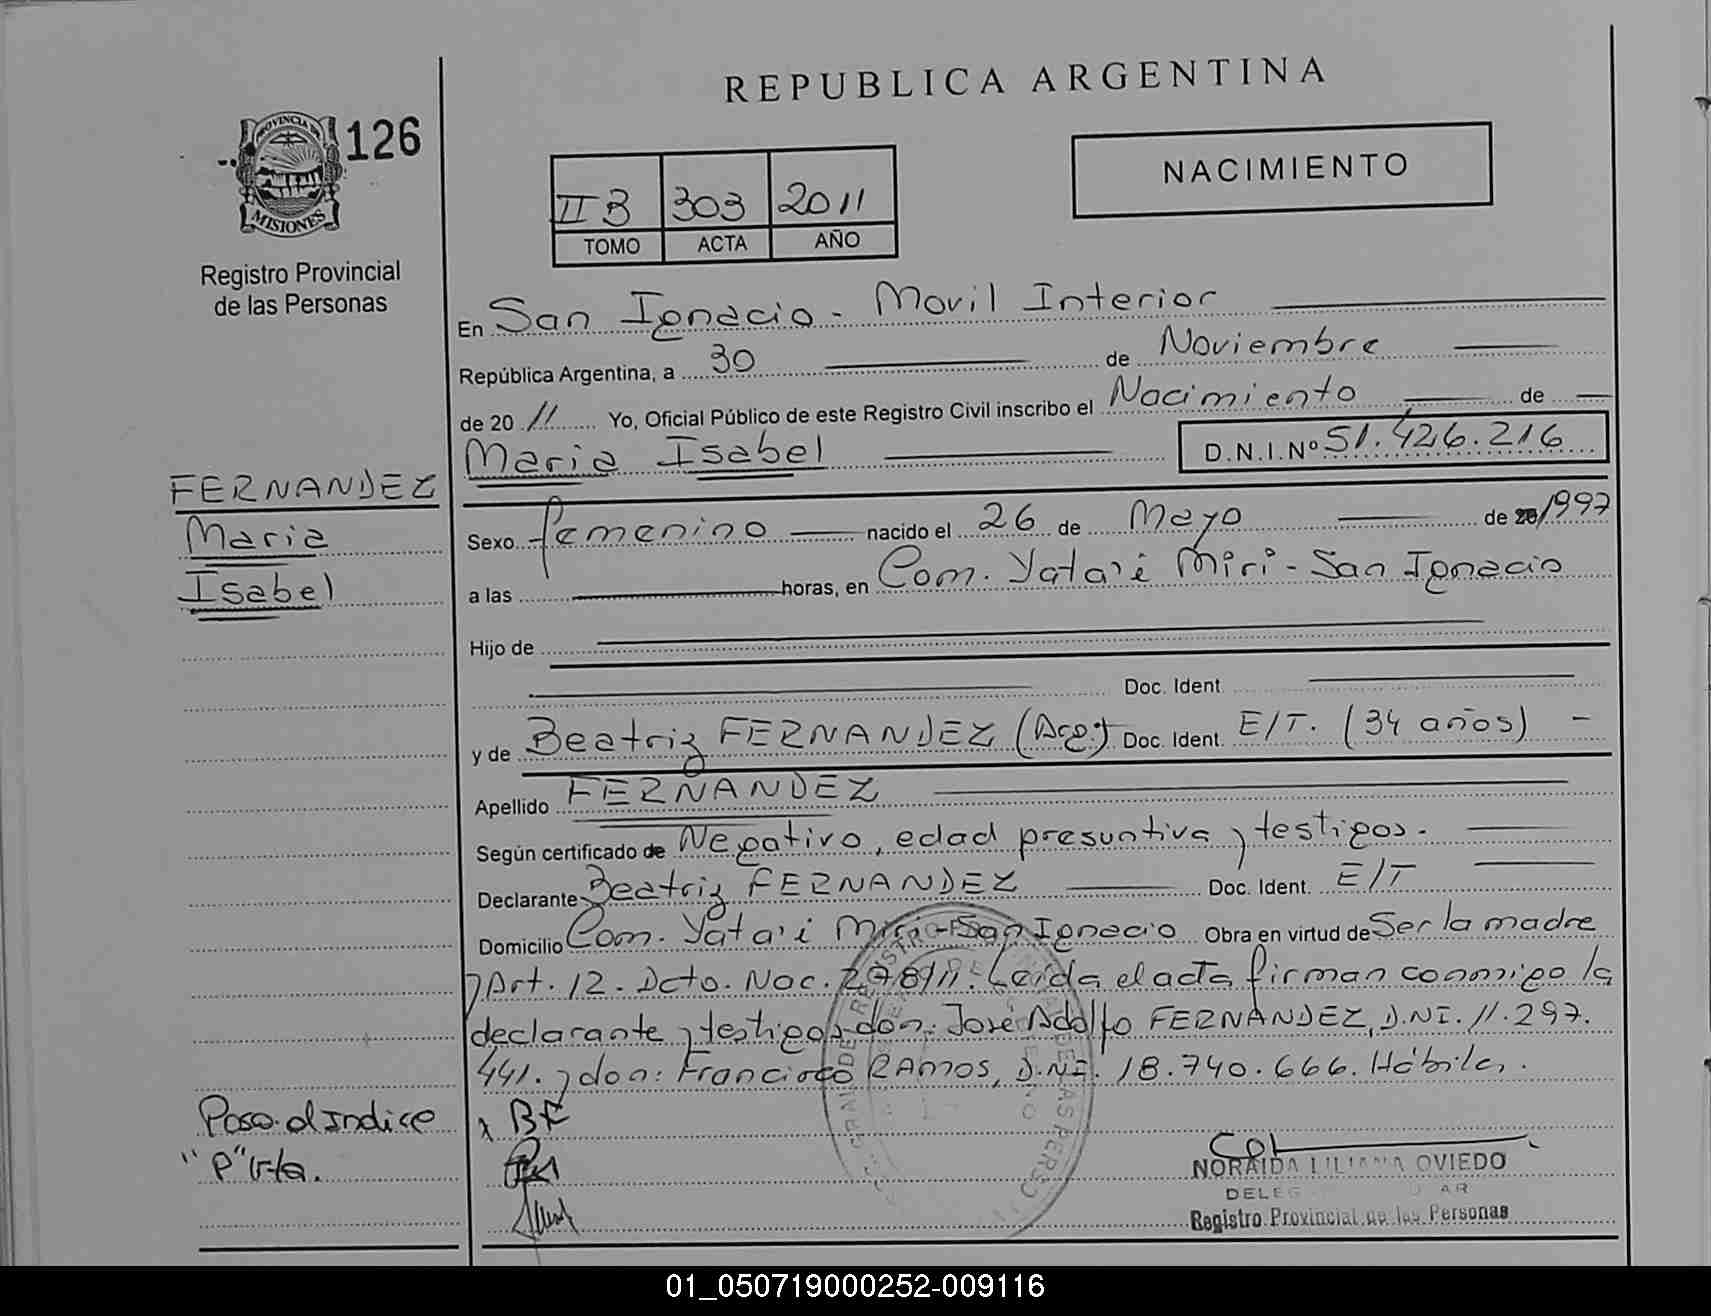 REPUBLICA ARGENTINA
PROVINCIA DE
MISIONES
126
Registro Provincial
de las Personas
II B 303 2011
TOMO ACTA AÑO
NACIMIENTO
En San Ignacio - Movil Interior
República Argentina, a 30 de Noviembre
de 20 11 Yo, Oficial Público de este Registro Civil inscribo el Nacimiento de
Maria Isabel D.N.I.Nº 51.426.216
FERNANDEZ
Maria
Isabel
Sexo femenino nacido el 26 de Mayo de 1997
a las horas, en Com. Yata'i Miri - San Ignacio
Hijo de
Doc. Ident.
y de Beatriz FERNANDEZ (Arg.) Doc. Ident. E/T. (34 años) -
Apellido FERNANDEZ
Según certificado de Negativo, edad presuntiva y testigos.
Declarante Beatriz FERNANDEZ Doc. Ident. E/T
Domicilio Com. Yata'i Miri - San Ignacio Obra en virtud de Ser la madre
y Art. 12. Dcto. Nac. 278/11. Leída el acta firman conmigo la
declarante y testigos don: José Adolfo FERNANDEZ, D.NI. 11.297.
441. y don: Francisco RAMOS, D.NI. 18.740.666. Hábiles.
Paso al Indice
"P" Vta.
x BF
NORAIDA LILIANA OVIEDO
Registro Provincial de las Personas
01_050719000252-009116